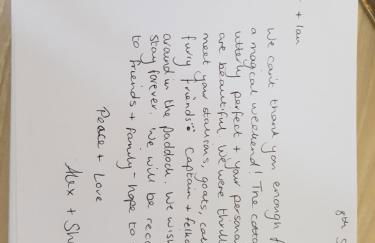 8th S
+ Ian
We can't thank you enough f
a magical weekend! The cotta
utterly perfect + your persona
are beautiful. We were thrill
meet your stallions, goats, cat
furry friends. Captain + Felke
around in the paddock. We wish
stay forever. We will be reco
to friends + family - hope to
Peace + Love
Alex + Sh